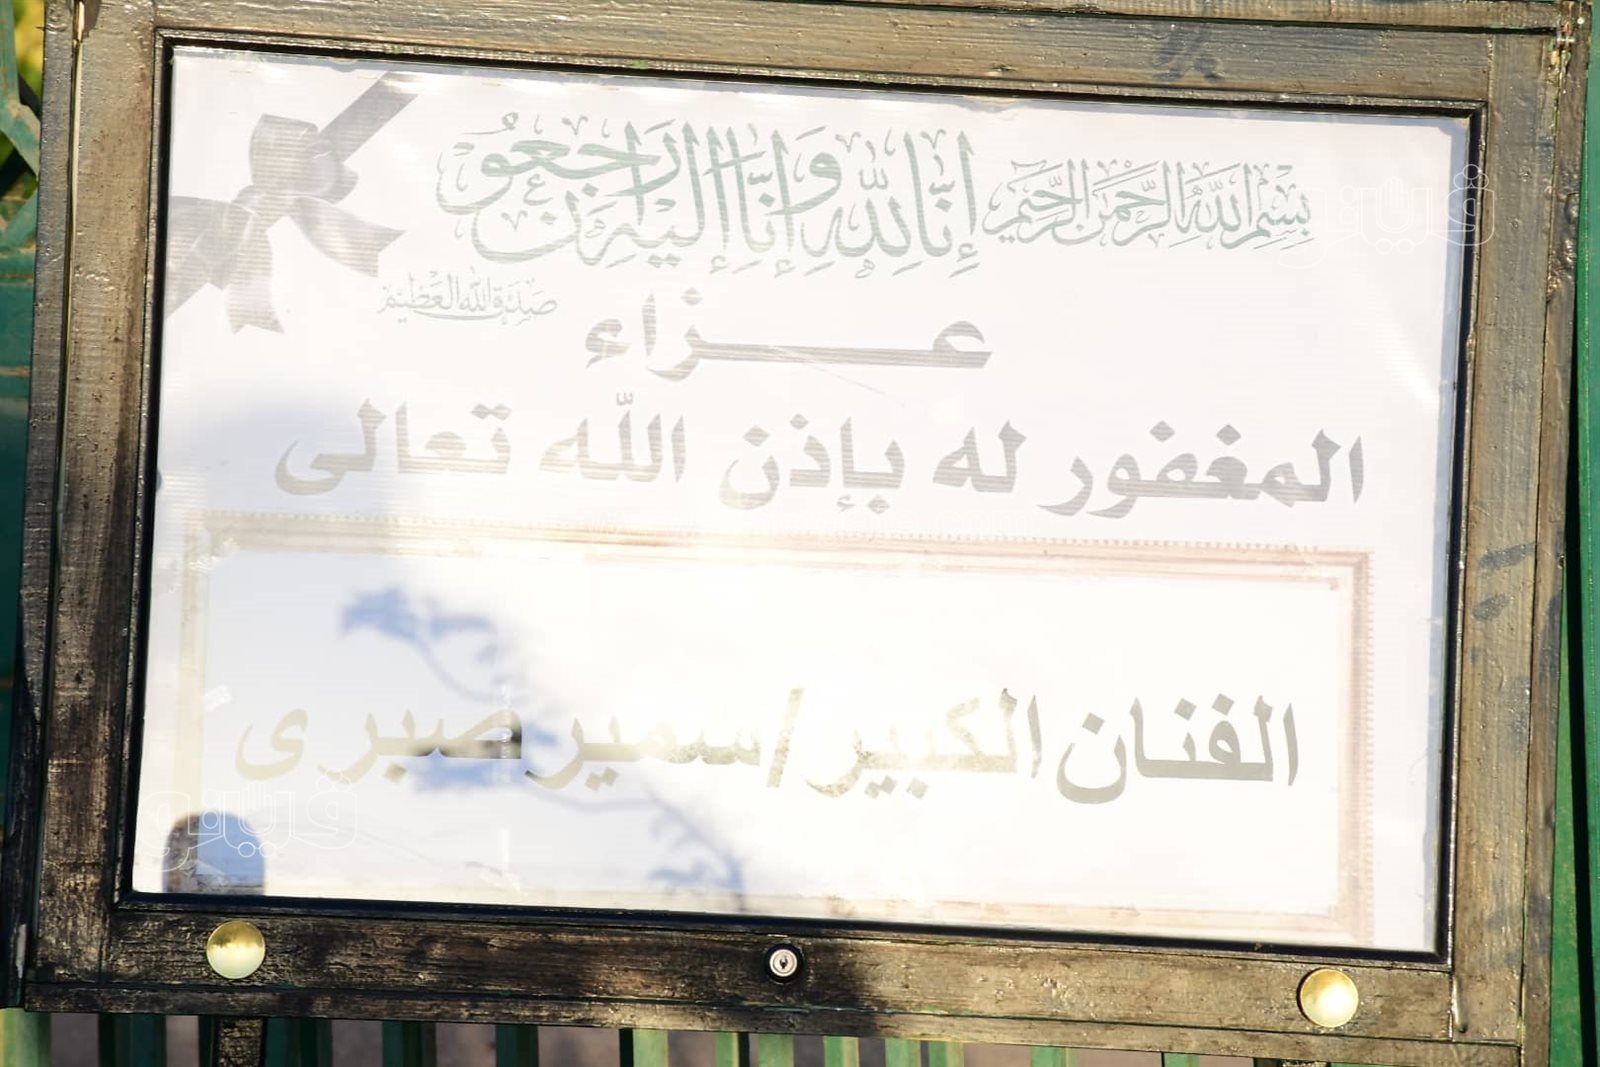 بسم الله الرحمن الرحيم إنا لله وإنا إليه راجعون
صدق الله العظيم
عزاء
المغفور له بإذن الله تعالى
الفنان الكبير / سمير صبرى